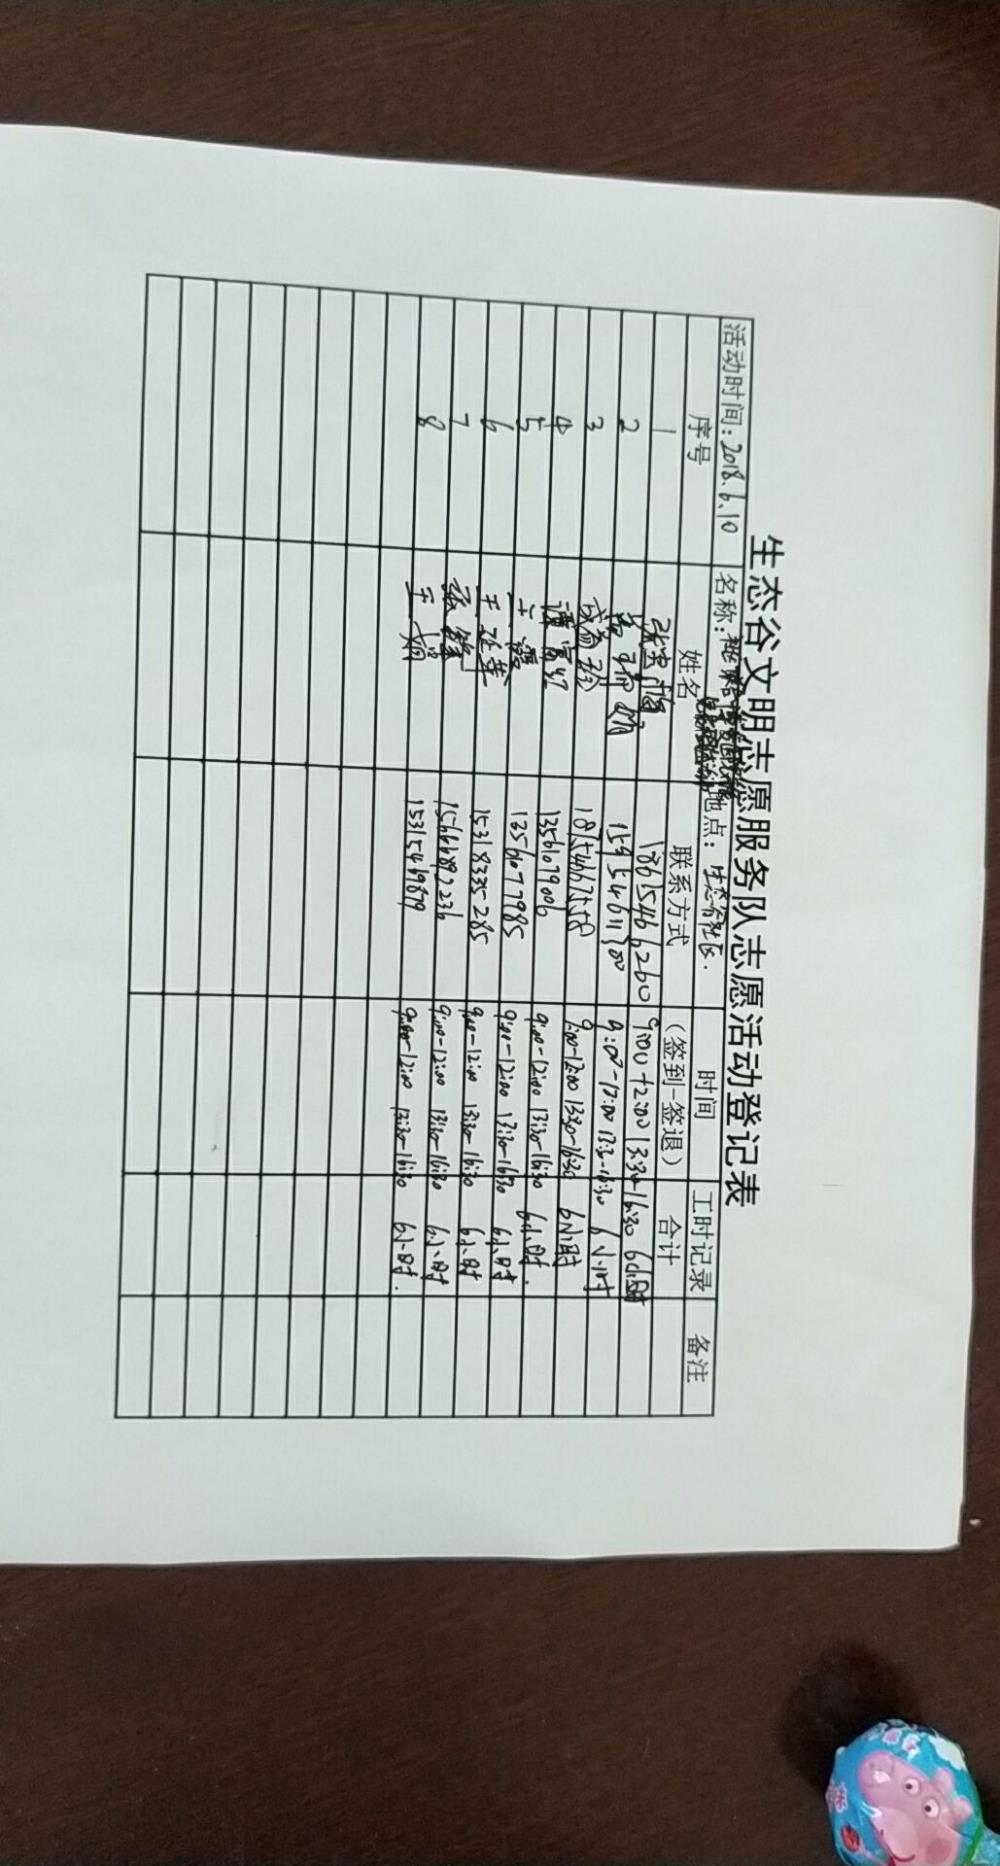 生态谷文明志愿服务队志愿活动登记表
活动时间：2018.6.10 名称： 地点：生态谷社区.
序号 姓名 联系方式 时间（签到-签退） 工时记录合计 备注
1 18615466260 9:00-12:00 13:30-16:30 6小时
2 15954611300 9:00-12:00 13:30-16:30 6小时
3 9:00-12:00 13:30-16:30 6小时
4 13561079006 9:00-12:00 13:30-16:30 6小时.
5 13561077985 9:00-12:00 13:30-16:30 6小时
6 王延华 15318335285 9:00-12:00 13:30-16:30 6小时
7 15666892236 9:00-12:00 13:30-16:30 6小时
8 王娟 15315469879 9:00-12:00 13:30-16:30 6小时.